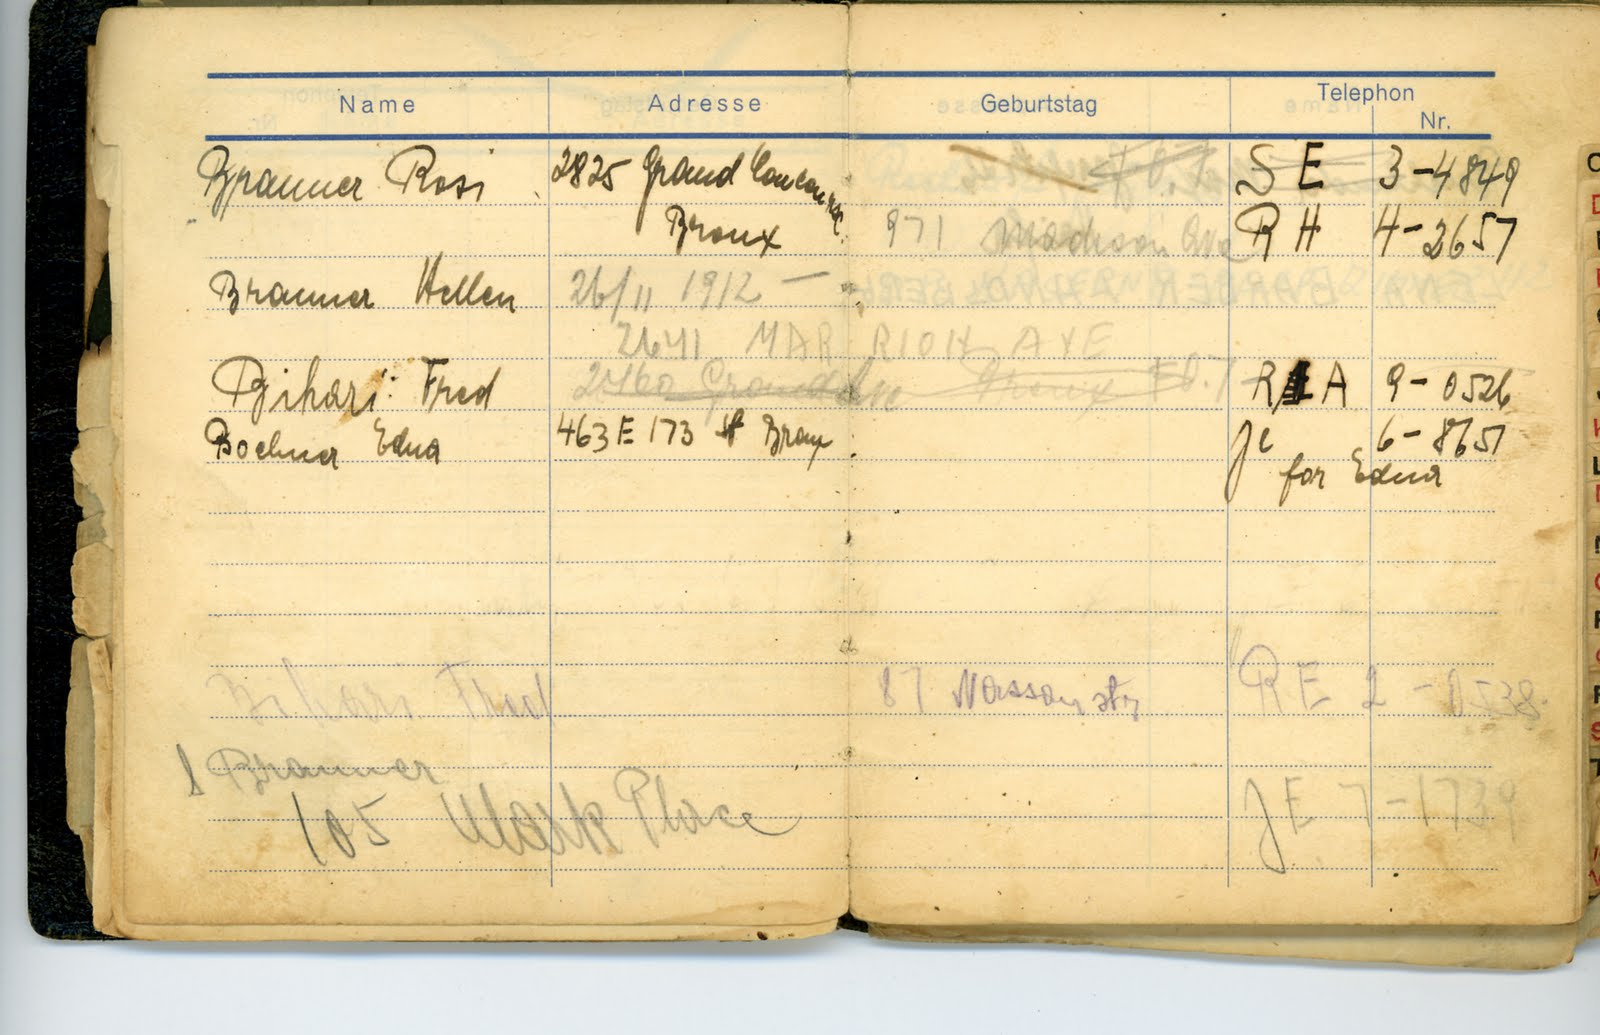 Name Adresse Geburtstag Telephon Nr.
Brauner Rosi 2825 Grand Concourse SE 3-4849
Bronx 971 Madison Ave RH 4-2657
Brauner Hellen 26/11 1912 —
2641 MARRION AVE
Bihari Fred 2460 Grand Ave Bronx R A 9-0526
Boehner Edna 463 E 173 st Bronx Je 6-8651
for Edna
Bihari Fred 87 Nassau str RE 2-0538
Brauner
105 Mark Place JE 7-1739